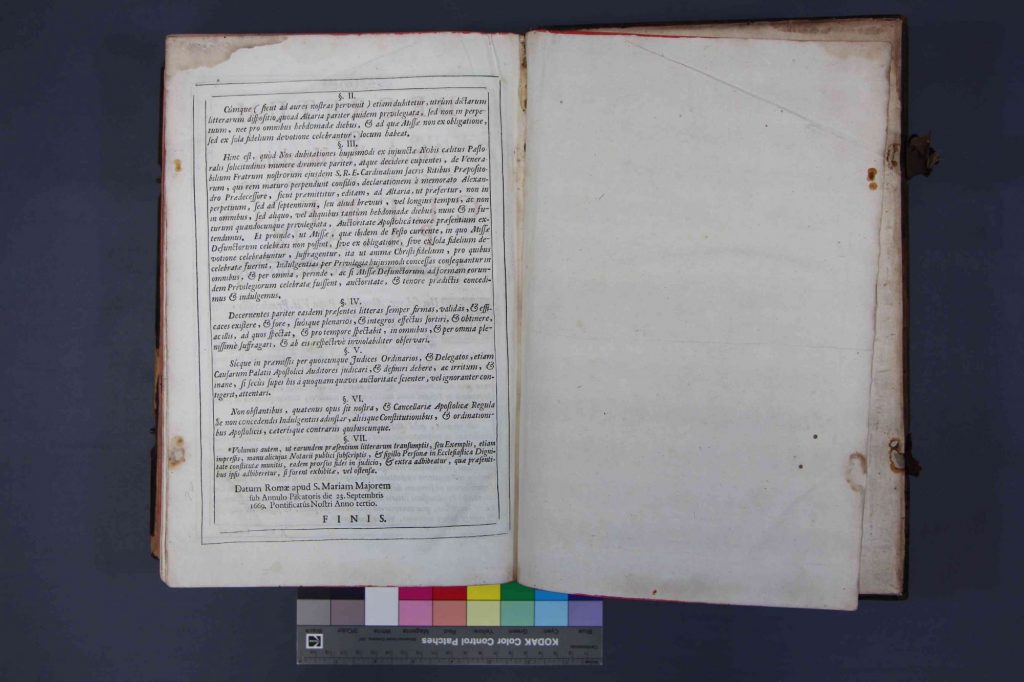 §. II.
Cúmque ( sicut ad aures nostras pervenit ) etiam dubitetur, utrùm dictarum
litterarum dispositio, quoad Altaria pariter quidem previlegiata, sed non in perpe-
tuum, nec pro omnibus hebdomadæ diebus, & ad quæ Missæ non ex obligatione,
sed ex sola fidelium devotione celebrantur, locum habeat.
§. III.
Hinc est, quod Nos dubitationes hujusmodi ex injunctæ Nobis cælitus Pasto-
ralis solicitudinis munere dirimere pariter, atque decidere cupientes, de Venera-
bilium Fratrum nostrorum ejusdem S. R. E. Cardinalium sacris Ritibus Præposito-
rum, qui rem maturo perpendunt consilio, declarationem à memorato Alexan-
dro Prædecessore, sicut præmittitur, editam, ad Altaria, ut præfertur, non in
perpetuum, sed ad septennium, seu aliud brevius, vel longius tempus, ac non
in omnibus, sed aliquo, vel aliquibus tantùm hebdomadæ diebus, nunc & in fu-
turum quandocunque privilegiata, Auctoritate Apostolicâ tenore præsentium ex-
tendimus. Et proinde, ut Missæ, quæ ibidem de Festo currente, in quo Missæ
Defunctorum celebrari non possint, sive ex obligatione, sive ex sola fidelium de-
votione celebrabuntur, suffragentur, ita ut animæ Christi fidelium, pro quibus
celebratæ fuerint, Indulgentias per Privilegia hujusmodi concessas consequantur in
omnibus, & per omnia, perinde, ac si Missæ Defunctorum ad formam eorun-
dem Previlegiorum celebratæ fuissent, auctoritate, & tenore prædictis concedi-
mus & indulgemus.
§. IV.
Decernentes pariter easdem præsentes litteras semper firmas, validas, & effi-
caces existere, & fore, suósque plenarios, & integros effectus sortiri, & obtinere,
ac illis, ad quos spectat, & pro tempore spectabit, in omnibus, & per omnia ple-
nissimè suffragari, & ab eis respectivè inviolabiliter observari.
§. V.
Sicque in præmissis per quoscunque Judices Ordinarios, & Delegatos, etiam
Causarum Palatii Apostolici Auditores judicari, & definiri debere, ac irritum, &
inane, si secùs super his à quoquam quavis auctoritate scienter, vel ignoranter con-
tigerit, attentari.
§. VI.
Non obstantibus, quatenus opus sit nostra, & Cancellariæ Apostolicæ Regula
de non concedendis Indulgentiis ad instar, aliisque Constitutionibus, & ordinationi-
bus Apostolicis, cæterisque contrariis quibuscunque.
§. VII.
*Volumus autem, ut earundem præsentium litterarum transumptis, seu Exemplis, etiam
impressis, manu alicujus Notarii publici subscriptis, & sigillo Personæ in Ecclesiastica Digni-
tate constitutæ munitis, eadem prorsùs fides in judicio, & extra adhibeatur, quæ præsenti-
bus ipsis adhiberetur, si forent exhibitæ, vel ostensæ.
Datum Romæ apud S. Mariam Majorem
sub Annulo Piscatoris die 23. Septembris
1669. Pontificatûs Nostri Anno tertio.
FINIS.
Blue Cyan Green Yellow Red Magenta White 3/Color Black
KODAK Color Control Patches